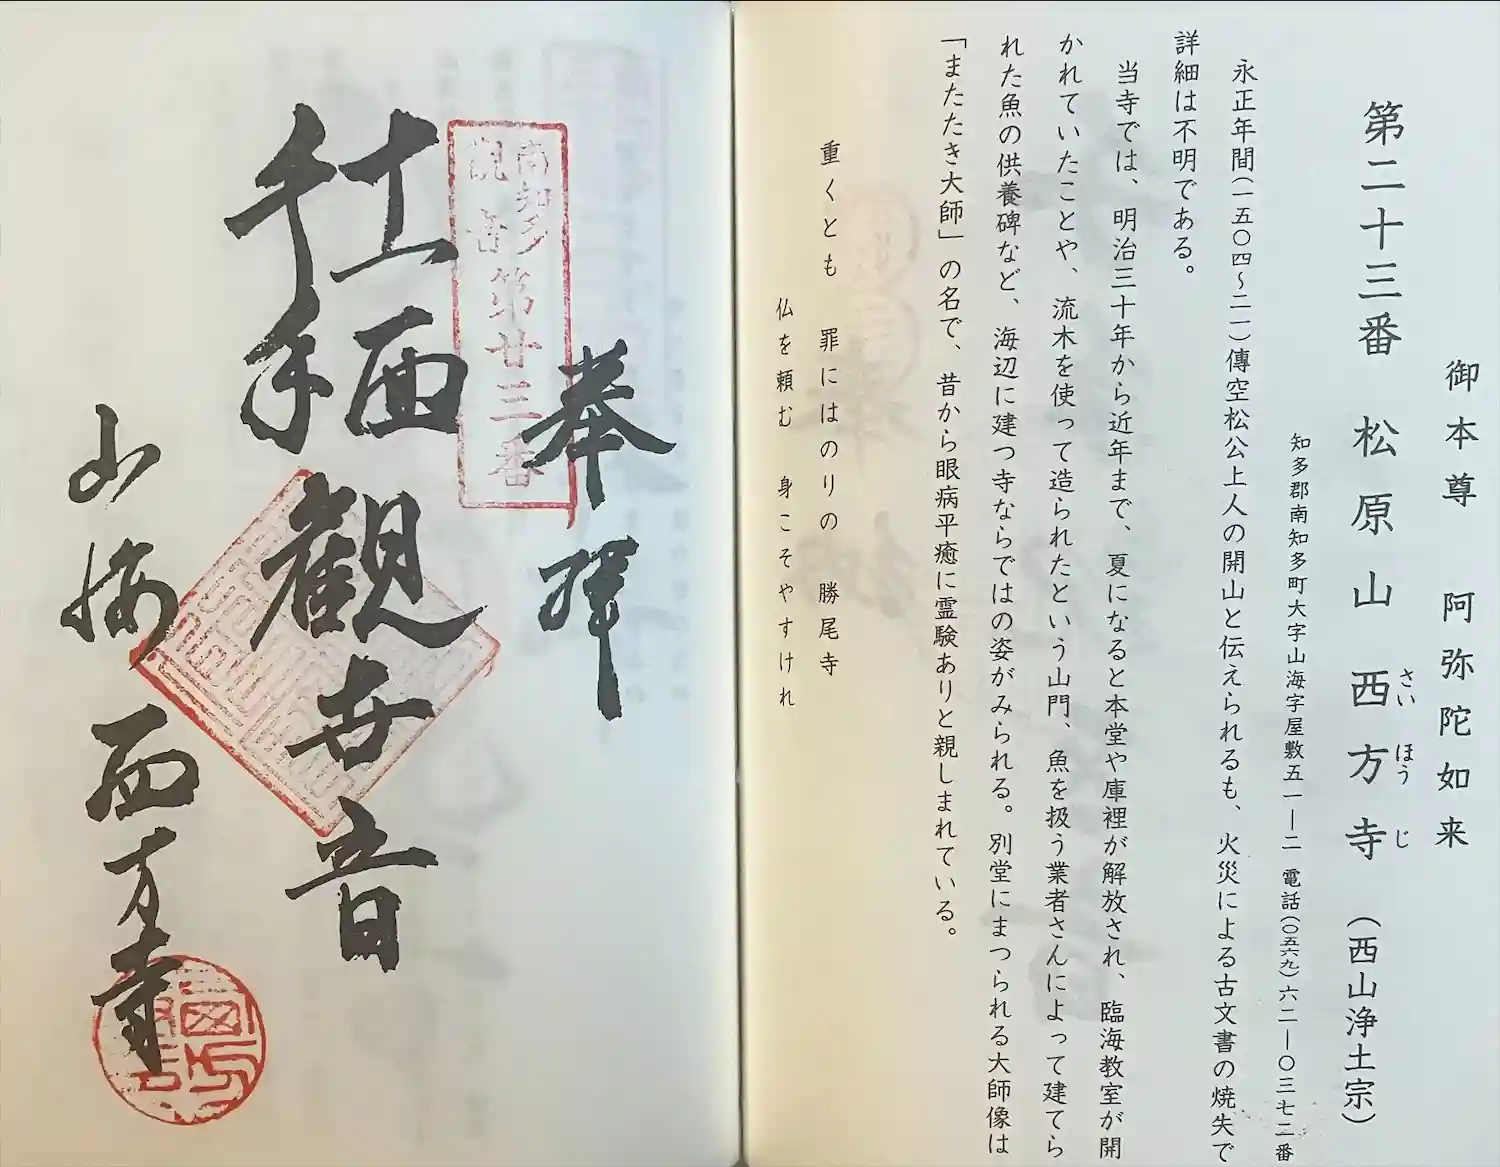 御本尊　阿弥陀如来
第二十三番　松原山　西方寺（西山浄土宗）
さいほうじ
知多郡南知多町大字山海字屋敷五一―二　電話（〇五六九）六二―〇三七二番
永正年間（一五〇四～二一）傳空松公上人の開山と伝えられるも、火災による古文書の焼失で
詳細は不明である。
当寺では、明治三十年から近年まで、夏になると本堂や庫裡が解放され、臨海教室が開
かれていたことや、流木を使って造られたという山門、魚を扱う業者さんによって建てら
れた魚の供養碑など、海辺に建つ寺ならではの姿がみられる。別堂にまつられる大師像は
「またたき大師」の名で、昔から眼病平癒に霊験ありと親しまれている。
重くとも　罪にはのりの　勝尾寺
仏を頼む　身こそやすけれ
奉拝
南知多
観音
第廿三番
千手
観世音
山海　西方寺